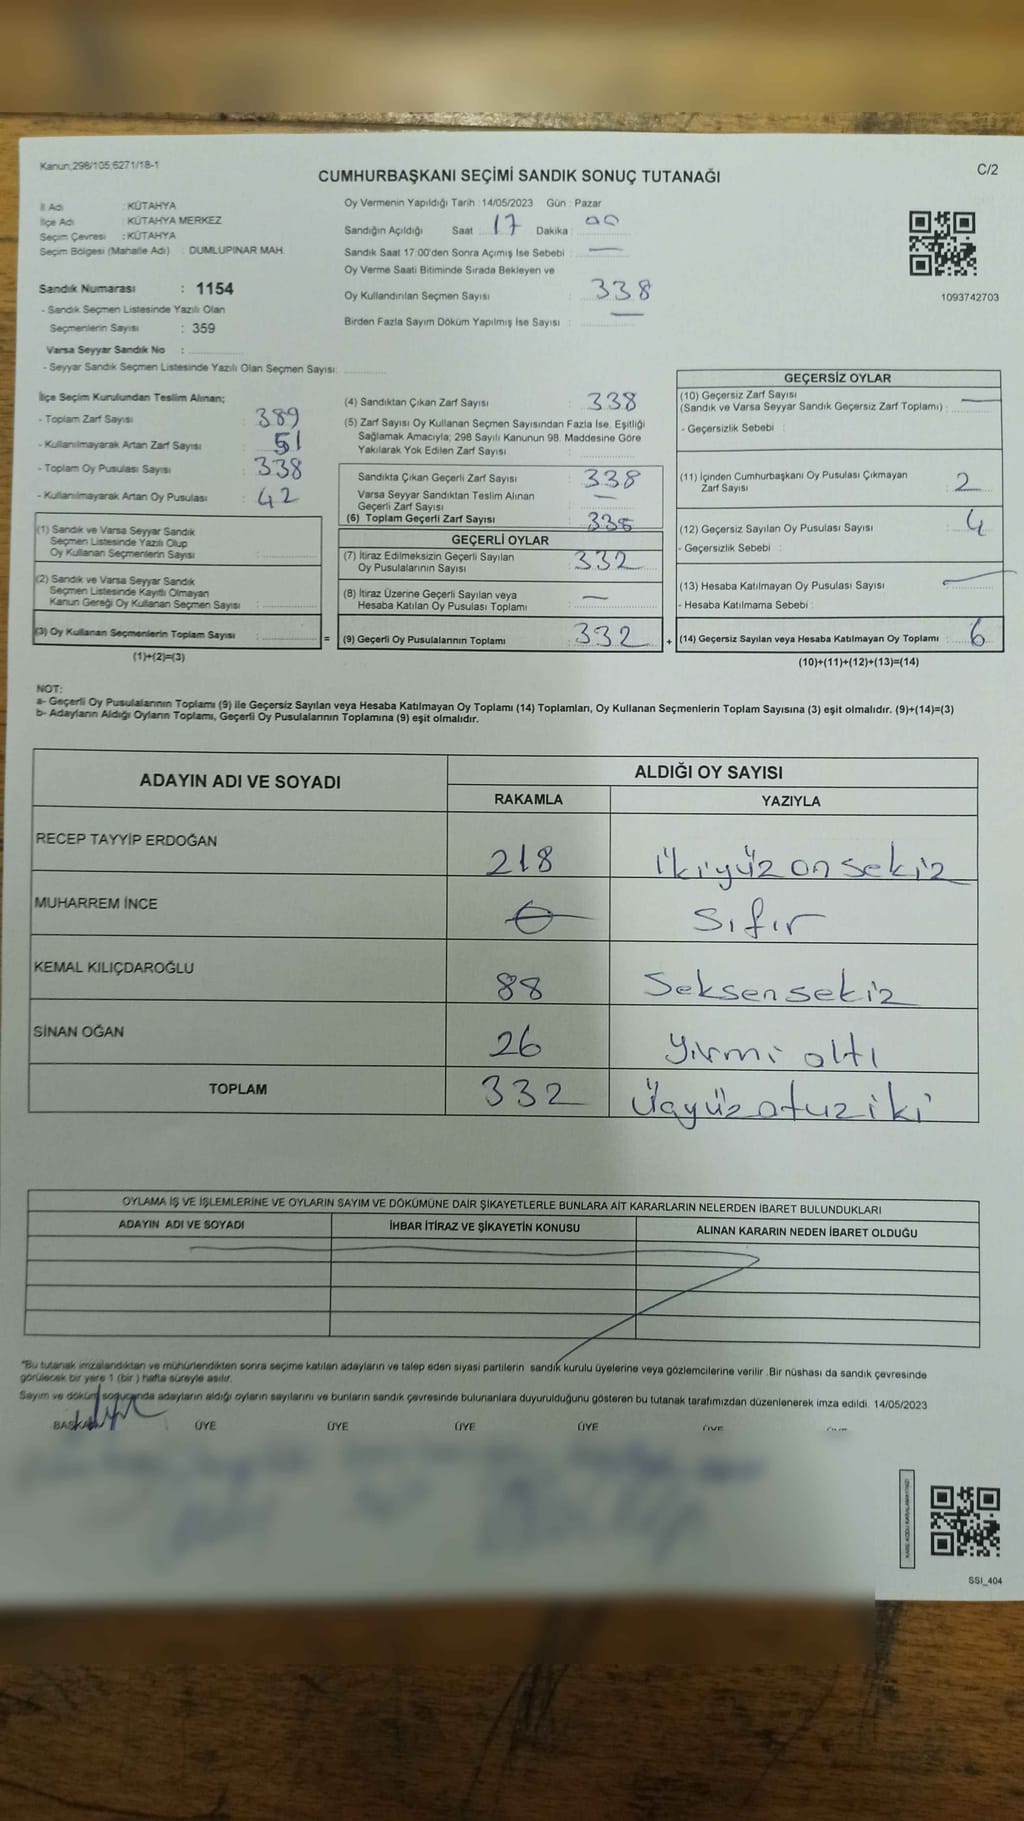 Kanun;298/105;6271/18-1
C/2
CUMHURBAŞKANI SEÇİMİ SANDIK SONUÇ TUTANAĞI
İl Adı : KÜTAHYA
İlçe Adı : KÜTAHYA MERKEZ
Seçim Çevresi : KÜTAHYA
Seçim Bölgesi (Mahalle Adı) : DUMLUPINAR MAH.
Sandık Numarası : 1154
- Sandık Seçmen Listesinde Yazılı Olan
Seçmenlerin Sayısı : 359
Varsa Seyyar Sandık No :
- Seyyar Sandık Seçmen Listesinde Yazılı Olan Seçmen Sayısı:
Oy Vermenin Yapıldığı Tarih : 14/05/2023 Gün : Pazar
Sandığın Açıldığı Saat : 17 Dakika : 00
Sandık Saat 17:00'den Sonra Açımış İse Sebebi : —
Oy Verme Saati Bitiminde Sırada Bekleyen ve
Oy Kullandırılan Seçmen Sayısı : 338
Birden Fazla Sayım Döküm Yapılmış İse Sayısı : —
1093742703
İlçe Seçim Kurulundan Teslim Alınan;
- Toplam Zarf Sayısı : 389
- Kullanılmayarak Artan Zarf Sayısı : 51
- Toplam Oy Pusulası Sayısı : 338
- Kullanılmayarak Artan Oy Pusulası : 42
(1) Sandık ve Varsa Seyyar Sandık
Seçmen Listesinde Yazılı Olup
Oy Kullanan Seçmenlerin Sayısı :
(2) Sandık ve Varsa Seyyar Sandık
Seçmen Listesinde Kayıtlı Olmayan
Kanun Gereği Oy Kullanan Seçmen Sayısı :
(3) Oy Kullanan Seçmenlerin Toplam Sayısı :
(1)+(2)=(3)
=
(4) Sandıktan Çıkan Zarf Sayısı : 338
(5) Zarf Sayısı Oy Kullanan Seçmen Sayısından Fazla İse, Eşitliği
Sağlamak Amacıyla; 298 Sayılı Kanunun 98. Maddesine Göre
Yakılarak Yok Edilen Zarf Sayısı :
Sandıkta Çıkan Geçerli Zarf Sayısı : 338
Varsa Seyyar Sandıktan Teslim Alınan
Geçerli Zarf Sayısı : —
(6) Toplam Geçerli Zarf Sayısı :
GEÇERLİ OYLAR
(7) İtiraz Edilmeksizin Geçerli Sayılan
Oy Pusulalarının Sayısı : 332
(8) İtiraz Üzerine Geçerli Sayılan veya
Hesaba Katılan Oy Pusulası Toplamı : —
(9) Geçerli Oy Pusulalarının Toplamı : 332
+
GEÇERSİZ OYLAR
(10) Geçersiz Zarf Sayısı
(Sandık ve Varsa Seyyar Sandık Geçersiz Zarf Toplamı) : —
- Geçersizlik Sebebi :
(11) İçinden Cumhurbaşkanı Oy Pusulası Çıkmayan
Zarf Sayısı : 2
(12) Geçersiz Sayılan Oy Pusulası Sayısı : 4
- Geçersizlik Sebebi :
(13) Hesaba Katılmayan Oy Pusulası Sayısı : —
- Hesaba Katılmama Sebebi :
(14) Geçersiz Sayılan veya Hesaba Katılmayan Oy Toplamı : 6
(10)+(11)+(12)+(13)=(14)
NOT:
a- Geçerli Oy Pusulalarının Toplamı (9) ile Geçersiz Sayılan veya Hesaba Katılmayan Oy Toplamı (14) Toplamları, Oy Kullanan Seçmenlerin Toplam Sayısına (3) eşit olmalıdır. (9)+(14)=(3)
b- Adayların Aldığı Oyların Toplamı, Geçerli Oy Pusulalarının Toplamına (9) eşit olmalıdır.
ADAYIN ADI VE SOYADI
ALDIĞI OY SAYISI
RAKAMLA YAZIYLA
RECEP TAYYİP ERDOĞAN 218 ikiyüz on sekiz
MUHARREM İNCE 0 sıfır
KEMAL KILIÇDAROĞLU 88 Seksen sekiz
SİNAN OĞAN 26 yirmi altı
TOPLAM 332 Üçyüz otuz iki
OYLAMA İŞ VE İŞLEMLERİNE VE OYLARIN SAYIM VE DÖKÜMÜNE DAİR ŞİKAYETLERLE BUNLARA AİT KARARLARIN NELERDEN İBARET BULUNDUKLARI
ADAYIN ADI VE SOYADI İHBAR İTİRAZ VE ŞİKAYETİN KONUSU ALINAN KARARIN NEDEN İBARET OLDUĞU
*Bu tutanak imzalandıktan ve mühürlendikten sonra seçime katılan adayların ve talep eden siyasi partilerin sandık kurulu üyelerine veya gözlemcilerine verilir. Bir nüshası da sandık çevresinde
görülecek bir yere 1 (bir) hafta süreyle asılır.
Sayım ve döküm sonucunda adayların aldığı oyların sayılarını ve bunların sandık çevresinde bulunanlara duyurulduğunu gösteren bu tutanak tarafımızdan düzenlenerek imza edildi. 14/05/2023
BAŞKAN ÜYE ÜYE ÜYE ÜYE ÜYE
SSI_404